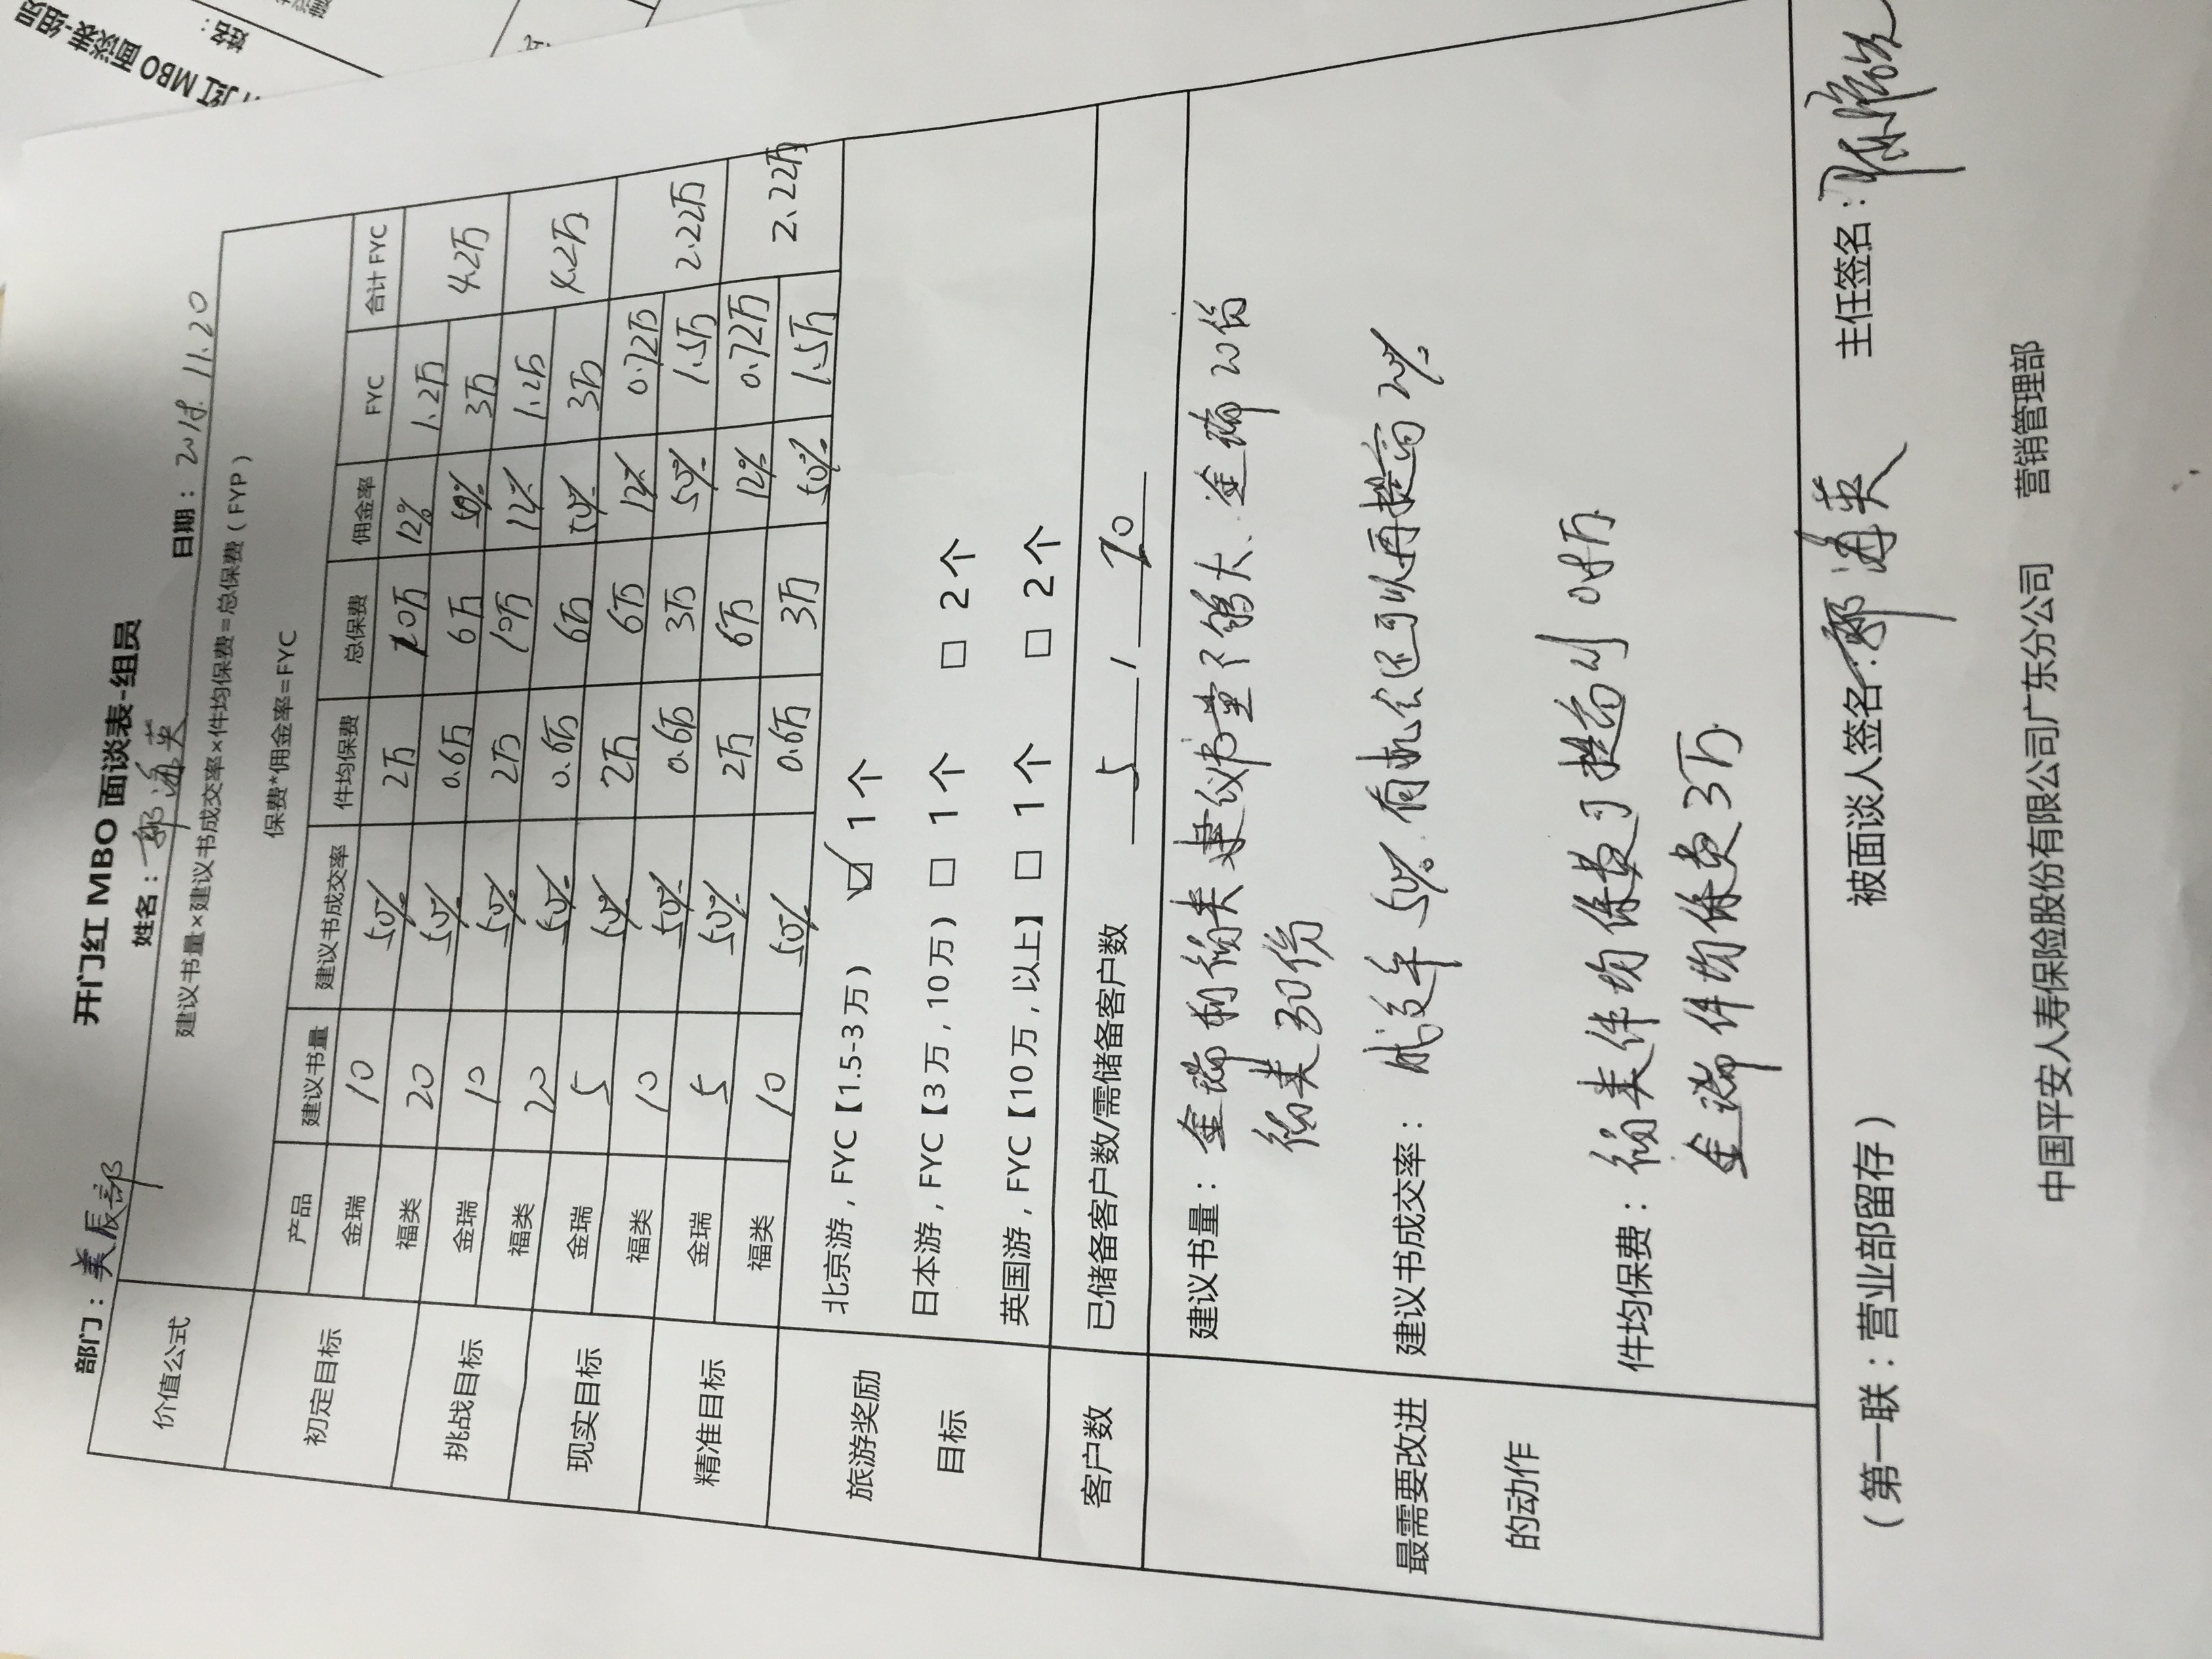 开门红 MBO 面谈表-组员
部门：美辰部 姓名：郭海英 日期：2018.11.20
价值公式 建议书量×建议书成交率×件均保费=总保费（FYP）
保费*佣金率=FYC
产品 建议书量 建议书成交率 件均保费 总保费 佣金率 FYC 合计 FYC
初定目标 金瑞 10 50% 2万 10万 12% 1.2万 4.2万
福类 20 50% 0.6万 6万 50% 3万
挑战目标 金瑞 10 50% 2万 10万 12% 1.2万 4.2万
福类 20 50% 0.6万 6万 50% 3万
现实目标 金瑞 5 50% 2万 6万 12% 0.72万 2.22万
福类 10 50% 0.6万 3万 50% 1.5万
精准目标 金瑞 5 50% 2万 6万 12% 0.72万 2.22万
福类 10 50% 0.6万 3万 50% 1.5万
旅游奖励
目标
北京游，FYC【1.5-3万） ☑ 1个
日本游，FYC【3万，10万） □ 1个 □ 2个
英国游，FYC【10万，以上】 □ 1个 □ 2个
客户数 已储备客户数/需储备客户数 5 / 20
最需要改进
的动作
建议书量：金瑞和福类建议书量不够大、金瑞20份
福类30份
建议书成交率：成交率50%.有机会还可以再提高20%
件均保费：福类件均保费可提高到0.8万
金瑞件均保费3万
（第一联：营业部留存） 被面谈人签名：郭海英 主任签名：
中国平安人寿保险股份有限公司广东分公司 营销管理部
开门红 MBO 面谈表-组员
姓名：